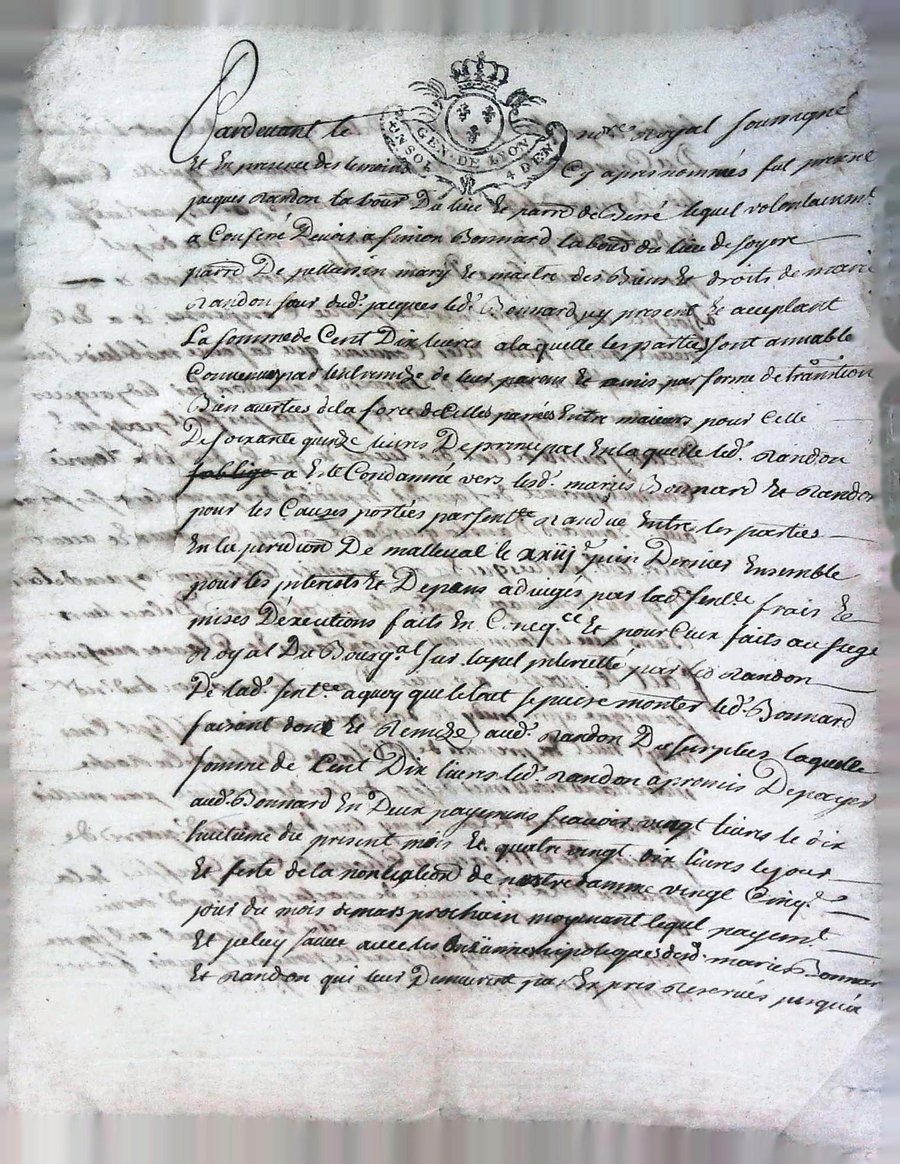 Pardevant le no.re royal soubsigné
GEN. DE LYON
UN SOL 4 DEN
et en presence des temoins cy apres nommés fut present
jacques Randon labour. du lieu et parr.e de lequel volontairem.t
a Confessé Devoir a simon Bonnard labour. du lieu de
parr.e De pellussin mary et maitre des Biens et droits de marie
Randon sœur dud. jacques led. Bonnard cy present et acceptant
La somme de Cent Dix livres a laquelle les parties sont amiable
Convenues par de leur parens et amis par forme de transa.on
Bien averties de la force dicelles passées entre majeurs pour Celle
De soixante quinze livres De principal En laquelle led. Randon
a Esté Condamné vers lesd. mariés Bonnard et Randon
pour les Causes portées par sent.ce Randue Entre les parties
En la De malleval le xxiij juin Dernier Ensemble
pour les interests et Depens adjugés par lad. sent.ce frais et
mises Dexecutions faits En et pour Ceux faits au siege
Royal Du Bourg.al sur lapel interietté par led. Randon
De lad. sent.ce a quoy que le tout se puisse monter led. Bonnard
faisant dont et Remize aud. Randon Du surplus laquelle
somme de Cent Dix livres led. Randon a promis De payer
aud. Bonnard En Deux payemens scavoir vingt livres le dix
huitieme du present mois et quatre vingt dix livres le jour
et feste de la nontiation de nostre damme vingt Cinq.e
jour du mois de mars prochain moyenant lequel payem.t
et jceluy sauve avec les hipoteques desd. mariés Bonnard
et Randon qui leur Demeurent par Expres Reservés jusqua